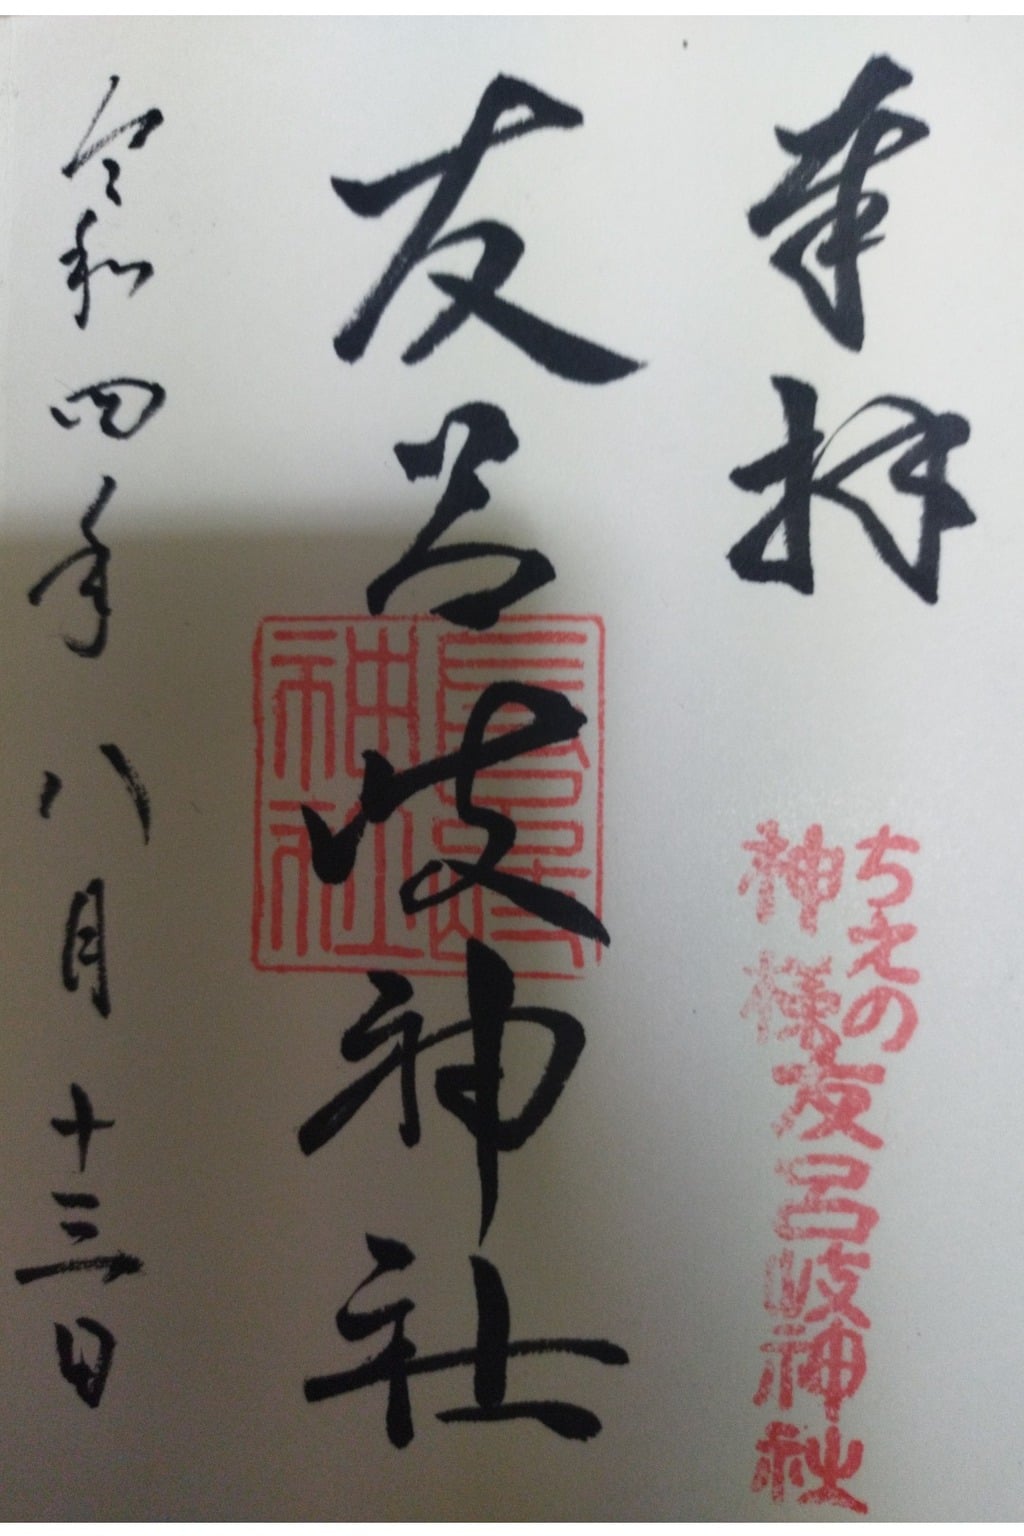 奉拝
ちえの
神様
友呂岐神社
友呂岐神社
友呂岐
神社
令和四年八月十三日